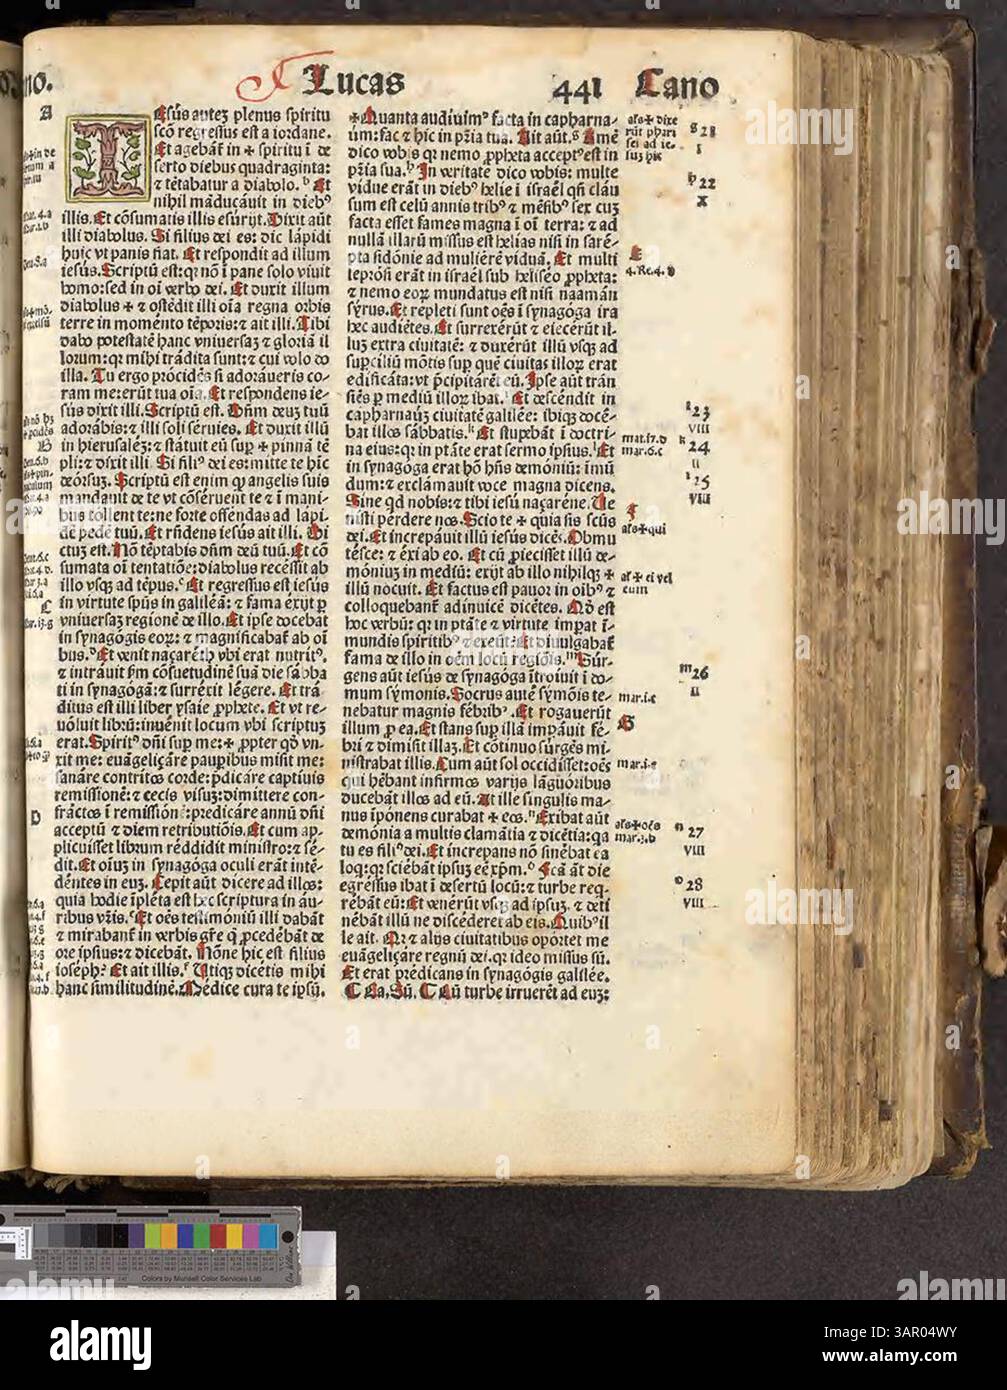 no. Lucas 441 Cano
A
Iesus autez plenus spiritu
scō regressus est a iordane.
Et agebāt in ✢ spiritu ī de
serto diebus quadraginta:
⁊ tētabatur a diabolo. ᵇ Et
nihil māducāuit in diebꝰ
illis. Et cōsumatis illis esūrijt. Dixit aūt
illi diabolus. Si filius dei es: dic lápidi
huic vt panis fiat. Et respondit ad illum
iesús. Scriptū est: qꝛ nō ī pane solo viuit
homo: sed in oī verbo dei. Et duxit illum
diabolus ✢ ⁊ ostēdit illi oīa regna orbis
terre in momēnto tēporis: ⁊ ait illi. Tibi
dabo potestatē hanc vniuersaz ⁊ gloriā il
lorum: qꝛ mihi trádita sunt: ⁊ cui volo do
illa. Tu ergo prócidēs si adoráueris co-
ram me: erūt tua oīa. Et respondens ie-
sús dixit illi. Scriptū est. Dn̄m deuz tuū
adorábis: ⁊ illi soli séruies. Et duxit illū
in hierusalēz: ⁊ státuit eū sup ✢ pinnā tē
pli: ⁊ dixit illi Si filiꝰ dei es: mitte te hic
deórsuz. Scriptū est enim qꝛ angelis suis
mandauit de te vt cōséruent te ⁊ ī mani-
bus tollent te: ne forte offendas ad lapi-
dē pedē tuū. Et rn̄dens iesús ait illi. Di
ctuz est. Nō tēptabis dn̄m deū tuū. Et cō
sumata oī tentatiōe: diabolus recéssit ab
illo vsqꝫ ad tēpus. ᶜ Et regressus est iesús
in virtute spūs in galilēā: ⁊ fama éxijt ꝑ
vniuersaz regionē de illo. Et ipse docebat
in synagógis eoꝝ: ⁊ magnificabat̄ ab oī
bus. ᵈ Et venit naçaréth vbi erat nutritꝰ.
⁊ intráuit ẜm cōsuetudinē sua die sábba
ti in synagógā: ⁊ surréxit légere. Et trá
ditus est illi liber ysaie ꝓphete. Et vt re-
uóluit librū: inuénit locum vbi scriptuz
erat. Spiritꝰ dn̄i sup me: ✢ ꝓpter qd̄ vn-
xit me: euāgeliçáre paupibus misit me:
sanáre contritos corde: p̄dicáre captiuis
remissionē: ⁊ cecis visuz: dimittere con-
frāctos ī remissionē: predicáre annū dn̄i
acceptū ⁊ diem retributiōis. Et cum ap-
plicuisset librum réddidit ministro: ⁊ sé-
dit. Et oīuz in synagóga oculi erāt intē-
dētes in euz. Cepit aūt dicere ad illos:
quia hodie īpléta est hec scriptura in áu-
ribus vr̄is. ᵉ Et oēs testimóniū illi dabāt
⁊ mirabant̄ in verbis gr̄e q̄ ꝓcedébāt de
ore ipsius: ⁊ dicébāt. Nōne hic est filius
iosēph? Et ait illis. ᶠ Utiqꝫ dicétis mihi
hanc similitudinē. Mēdice cura te ip̄sū.
✢ Quanta audiuimꝰ facta in capharna-
úm: fac ⁊ hic in pr̄ia tua. Ait aūt. ᵍ Amē
dico vobis qꝛ nemo ꝓpheta acceptꝰ est in
pr̄ia sua. ʰ In veritate dico vobis: multe
vidue erāt in diebꝰ helie ī israēl qn̄ cláu
sum est celū annis tribꝰ ⁊ mēsibꝰ sex cuz
facta esset fames magna ī oī terra: ⁊ ad
nullā illarū missus est helias nisi in saré-
pta sidónie ad muliérē viduā. Et multi
leprósi erāt in israēl sub heliséo ꝓpheta:
⁊ nemo eoꝝ mundatus est nisi naamán
sýrus. Et repleti sunt oēs ī synagóga ira
hec audiētes. Et surrexérūt ⁊ eiecérūt il-
luz extra ciuitatē: ⁊ duxérūt illū vsqꝫ ad
supciliū mōtis sup quē ciuitas illoꝝ erat
edificáta: vt p̄cipitárēt eū. Ipse aūt trán
siēs ꝑ mediū illoꝝ ibat. ⁱ Et descēdit in
capharnaúz ciuitatē galilēe: ibiqꝫ docē-
bat illos sábbatis. ᵏ Et stupēbāt ī doctri-
na eius: qꝛ in ptāte erat sermo ipsíus. ˡ Et
in synagóga erat hō hn̄s demóniū: īmū
dum: ⁊ exclámauit voce magna dicens.
Sine qd nobis: ⁊ tibi iesú naçaréne. Ue
nisti pérdere nos. Scio te ✢ quia sis scūs
dei. Et increpáuit illū iesús dicēs. Obmu
tésce: ⁊ éxi ab eo. Et cū proiecisset illū de-
móniuz in mediū: exijt ab illo nihilqꝫ ✢
illū nocuit. Et factus est pauor in oibꝰ ⁊
colloquebant̄ adinuicē dicētes. Qd̄ est
hoc verbū: qꝛ in ptāte ⁊ virtute imꝑat ī-
mundis spiritibꝰ ⁊ exeūt. Et diuulgabat̄
fama de illo in oēm locū regiōis. ᵐ Súr-
gens aūt iesús de synagóga ītroiuit ī do-
mum sýmonis. Socrus autē sýmōis te-
nebatur magnis fébribꝰ. Et rogauerūt
illum ꝑ ea. Et stans sup illā impáuit fé-
bri ⁊ dimisit illaz. Et cōtinuo súrgēs mi-
nistrabat illis. Cum aūt sol occidisset: oēs
qui hēbant infirmos varijs láguóribus
ducēbāt illos ad eū. At ille singulis ma-
nus īpónens curabat ✢ eos. ⁿ Exibāt aūt
demónia a multis clamātia ⁊ dicētia: qꝛ
tu es filiꝰ dei. Et increpans nō sinēbat ea
loq: qꝛ sciébāt ipsuz eē xp̄m. ᵒ Fcā āt die
egréssus ibat ī desértū locū: ⁊ turbe req-
rébāt eū: Et venérūt vsqꝫ ad ipsuz: ⁊ deti
nébāt illū ne discéderet ab eis. Quibꝰ il
le ait. Qꝛ ⁊ alijs ciuitatibus opórtet me
euāgeliçáre regnū dei. qꝛ ideo missus sū.
Et erat prédicans in synagógis galilēe.
C Na. Sū. C Cū turbe irruerēt ad euz:
als ✢ dixe
rūt phari
sei ad ie-
suz hic
g 21
I
h 22
X
E
4. Re. 4. B
i 23
VIII
mat. 17. d k 24
mar. 6. c
II
l 25
VIII
F
als ✢ qui
al ✢ ei vel
eum
m 26
II
mar. i. c
G
mar. i. e
als ✢ oēs n 27
mar. 3. b
VIII
o 28
VIII
B
C
D
alamy
Image ID: 3AR04WY
www.alamy.com
Colors by Munsell Color Services Lab